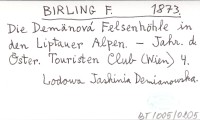 BIRLING F. 1873.
Die Demánová Felsenhöhle in
den Liptauer Alpen. – Jahr. d.
Öster. Touristen Club (Wien) 4.
Lodowa Jaskinia Demianowska.
BT 1005/0205